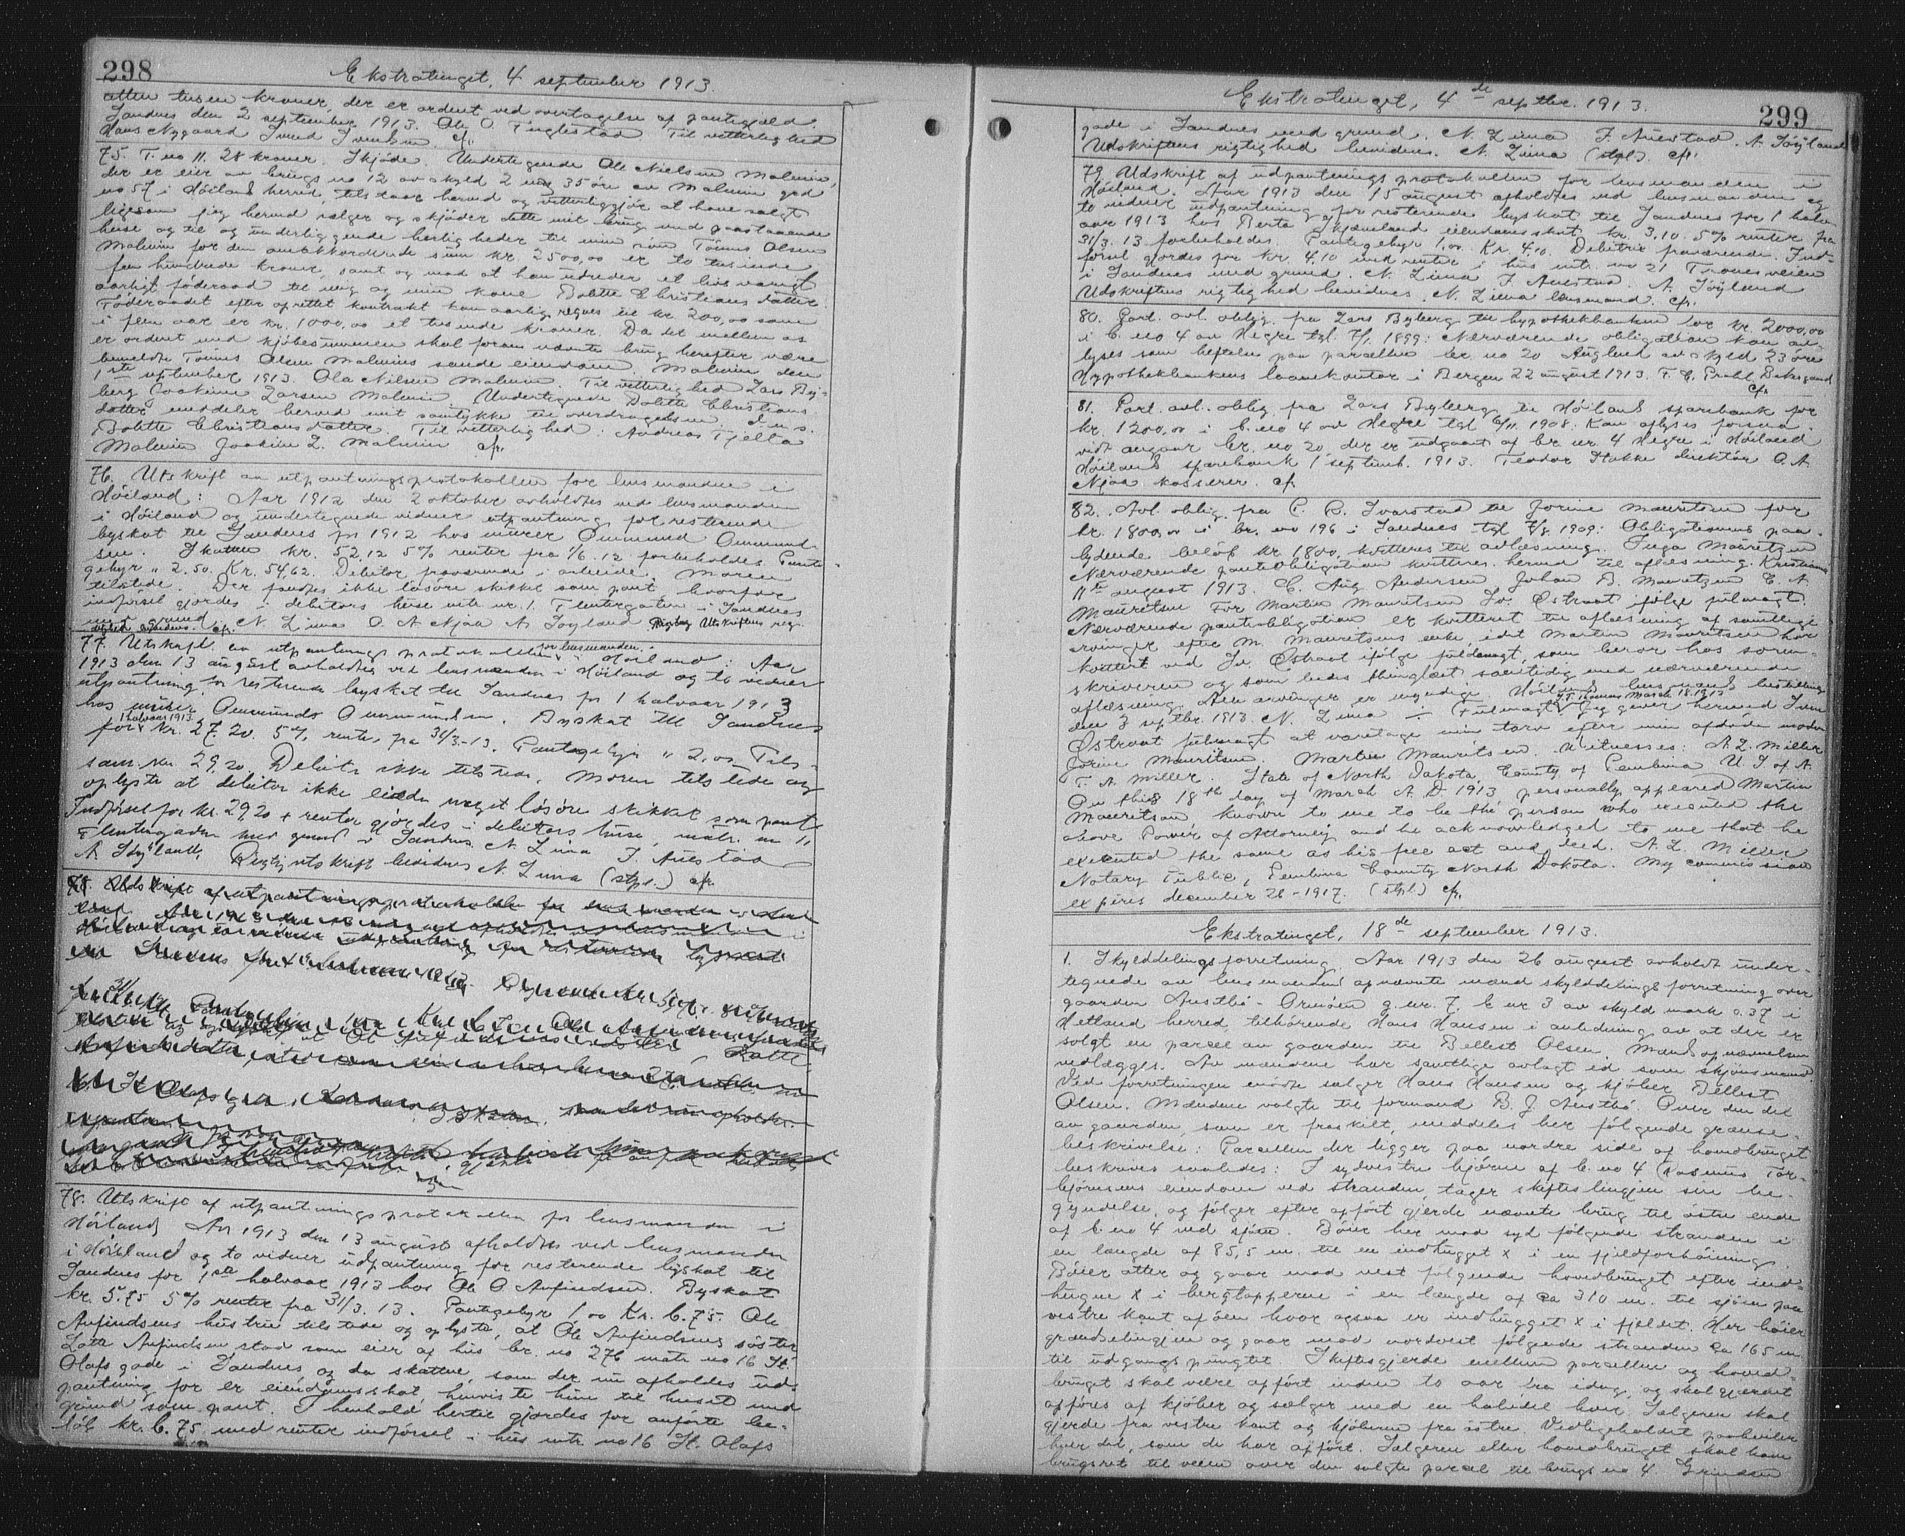 298
Ekstratinget, 4 september 1913.
atten tusen kroner, der er ordent ved overtagelse af pantegjæld
Sandnes den 2 september 1913. Ole O Tuglestad Til vitterlighed
Hans Nygaard Svend Svendsen cfr.
75. T. no 11. 28 kroner. Skjøde. Undertegnede Ole Nielsen Malmin,
der er eier av brugs no 12 av skyld 2 mrk 35 øre av Malmin grd
no 57 i Høiland herred, tilstaar herved og vitterliggjør at have solgt
ligesom jeg herved sælger og skjøder dette mit brug med paastaaende
huse og til og underliggende herligheder til min søn Tønnes Olsen
Malmin for den omakkorderede sum kr 2500,00 er to tusinde
fem hundrede kroner, samt og mod at han udreder et livsvarigt
aarligt føderaad til mig og min kone Bolette Christiansdatter
Føderaadet efter oprettet kontrakt kan aarlig regnes til kr 200,00 som
i fem aar er kr. 1000,00 et tusinde kroner. Da det mellem os
er ordnet med kjøbesummen skal foran nævnte brug herefter være
bemeldte Tønnes Olsen Malmins sande eiendom. Malmin den
1ste september 1913. Ole Nilsen Malmin. Til vitterlighed Lars By-
berg Joakim Larsen Malmin. Undertegnede Bolette Christians
datter meddeler herved mit samtykke til overdragelsen. d.u.s.
Bolette Christiansdatter. Til vitterlighed: Andreas Tjelta
Malmin Joakim L. Malmin cfr.
76. Utskrift av utpantningsprotokollen for lensmanden i
Høiland: Aar 1912 den 2 oktober avholdtes ved lensmanden
i Høiland og undertegnede vidner utpantning for resterende
byskat til Sandnes for 1912 hos murer Ommund Ommund-
sen. Skatten kr. 52,12 5% renter fra 1/6.12 forbeholdes Pante-
gebyr " 2.50. Kr. 54,62. Debitor fraværende i arbeide. Moren
tilstede. Der fandtes ikke løsøre skikket som pant, hvorfor
indførsel gjordes i debitors huse mtr nr. 1. Flintegaten i Sandnes
med grund. N. Lima O. A. Njaa A. Jøyland Rigtig Utskriftens rig-
tighed bevidnes. cfr.
77. Utskrift av utpantningsprotokollen for lensmanden i Høiland: Aar
1913 den 13 august avholdtes ved lensmanden i Høiland og to vidner
utpantning for resterende byskat til Sandnes for 1 halvaar 1913
hos murer Ommund Ommundsen. Byskat til Sandnes
for 1 halvaar 1913 kr. 27.20. 5% renter fra 31/3-13. Pantegebyr " 2,00 Tils-
sam. Kr. 29,20. Debitor ikke tilstede. Moren tilstede og
oplyste at debitor ikke eiede noget løsøre skikket som pant
Indførsel for kr. 29,20 + renter gjordes i debitors huse, matr. no 1,
Flintegaden med grund i Sandnes. N Lima F. Auestad
A. Jøyland, Rigtig utskrift bevidnes N. Lima (stpl.) cfr.
78. Utskrift af utpantningsprotokollen for lensmanden i
Høiland Aar 1913 den 13 august afholdtes ved lensmanden
i Høiland og to vidner udpantning for resterende byskat til
Sandnes for 1ste halvaar 1913 hos Ole O Anfindsen. Byskat
kr. 5.75 5% renter fra 31/3.13. Pantegebyr 1,00 Kr. 6.75. Ole
Anfindsens hustru tilstede og oplyste, at Ole Anfindsens søster
Lotte Anfindsen stod som eier af hus br. no 276 matr no 16 St.
Olafs gade i Sandnes og da skatten, som der nu afholdes ud-
pantning for er eiendomsskat henviste hun til huset med
grund som pant. I henhold hertil gjordes for anførte be-
løb kr. 6.75 med renter indførsel i hus mtr. no 16 St. Olafs
299
Ekstratinget, 4de septbr. 1913.
gade i Sandnes med grund. N. Lima F. Auestad. A. Jøyland
Udskriftens rigtighed bevidnes. N. Lima (stpl). cfr.
79. Udskrift af udpantningsprotokollen for lensmanden i
Høiland. Aar 1913 den 15 august afholdtes ved lensmanden og
to vidner udpantning for resterende byskat til Sandnes for 1 halv-
aar 1913 hos Berta Skjæveland eiendomsskat kr. 3,10. 5% renter fra
31/3.13 forbeholdes. Pantegebyr 1,00 Kr. 4,10. Debitrix fraværende. Ind-
førsel gjordes for kr. 4,10 med renter i hus mtr. no 21 Tronesveien
i Sandnes med grund. N. Lima F. Auestad. A. Jøyland
Udskriftens rigtighed bevidnes. N. Lima lensmand. cfr.
80. Part. avl. oblig. fra Lars Byberg til hypothekbanken lor kr. 2000,00
i b. no 4 av Hegre tgl. 7/1. 1899: Nærværende obligation kan av-
lyses som heftelse paa parcellen br. no 20 Anglend av skyld 23 øre
Hypothekbankens laanekontor i Bergen 22 august 1913. F. C. Prahl, Bakesund
cfr.
81. Part. avl. oblig fra Lars Byberg til Høiland sparebank for
kr. 1200,00 i b. no 4 av Hegre tgl 6/11. 1908. Kan aflyses forsaa-
vidt angaar br. no 20, der er udgaaet af br. nr. 4 Hegre i Høiland
Høiland sparebank 1 septemb. 1913. Teodor Stokke direktør O. A.
Njaa kasserer. cfr.
82. Avl. oblig. fra C. B. Ivarstad til Jorine Mauritsen for
kr. 1800,00 i br. no 196 i Sandnes tgl 7/8 1909: Obligationens paa-
lydende beløb kr 1800, kvitteres til avlæsning. Inga Mauritzen
Nærværende pantobligation kvitteres herved til aflæsning. Kristiania
11te august 1913. C. Aug Andersen Johan B. Mauritzen E. A.
Mauritsen For Martin Mauritsen Iv. Østraat ifølge fulmagt.
Nærværende pantobligation er kvitteret til aflæsning af samtlige
arvinger efter M. Mauritsens enke, idet Martin Mauritsen har
kvittert ved Iv. Østraat ifølge fuldmagt, som beror hos soren-
skriveren og som bedes thinglæst samtidig med nærværende
aflæsning. Alle arvinger er myndige. Høiland lensmands bestilling
den 3 septbr. 1913. N. Lima ÷ (Fulmagt St. Thomas March 18.1913 Jeg giver herved Iven
Østraat fulmagt at varetage min tarv efter min afdøde moder
Jorine Mauritsen. Martin Mauritsen. Witnesses: A. L. Miller
T. A. Miller. State of North Dakota, County of Pembina U. S of A.
On this 18th day of March A. D 1913 personally appeared Martin
Mauritson known to me to be the person who executed the
above Power of Attorney and he acknowledged to me that he
executed the same as his free act and deed. A. L. Miller
Notary Public, Pembina County North Dakota. My commission
expires december 26-1917. (stpl.) cfr.
Ekstratinget, 18de september 1913.
1. Skylddelingsforretning. Aar 1913 den 26 august avholdt under-
tegnede av lensmanden opnævnte mænd skylddelingsforretning over
gaarden Austbø-Ormøen g. nr. 7 b nr 3 av skyld mark 0.37 i
Hetland herred, tilhørende Hans Hansen i anledning av at der er
solgt en parcel av gaarden til Bellest Olsen. Mandsopnævnelsen
vedlægges. Av mændene har samtlige avlagt ed som skjønsmænd
Ved forretningen mødte sælger Hans Hansen og kjøber Bellest
Olsen. Mændene valgte til formand B. J. Austbø. Over den del
av gaarden, som er fraskilt, meddeles her følgende grænse-
beskrivelse: Parcellen der ligger paa nordre side af hovedbruget
beskrives saaledes: I sydvestre hjørne af b. no 4 (Rasmus Tor-
bjørnsens eiendom ved stranden, tager skifteslinjen sin be-
gyndelse, og følger efter opført gjerde nævnte brug til østre ende
af b. no 4 ved sjøen. Bøier her mod syd følgende stranden i
en længde af 85,5 m. til en indhugget x i en fjeldforhøining.
Bøier atter og gaar mod vest følgende hovedbruget efter ind-
hugne x i bergtopperne i en længde af ca 310 m. til sjøen paa
vestre kant af øen hvor ogsaa er indhugget x i fjeldet. Her bøier
grændselinjen og gaar mod nordvest følgende stranden ca 165 m.
til udgangspunktet. Skiftesgjerde mellem parcellen og hoved-
bruget skal være opført inden to aar fra idag, og skal gjerdet
opføres af kjøber og sælger med en halvdel hver. Sælgeren skal
gjerde fra vestre kant og kjøberen fra østre. Vedligeholdet paahviler
hver del, som de har opført. Sælgeren eller hovedbruget skal have
brugsret til veien over den solgte parcel til brugs no 4. Grinden